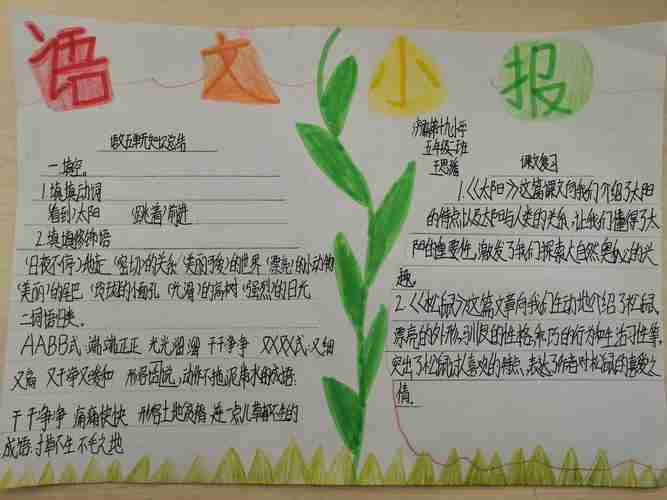 语文小报
语文五单元知识总结
一.填空。
1.填填动词
看到)太阳 (跳着)前进
2.填填修饰语
(日夜不停) (密切)的关系 (美丽可爱)的世界 (漂亮)的小动物
(美丽)的尾巴 的小面孔 (光滑)的 (强烈)的日光
二.词语归类。
AABB式:端端正正 光光溜溜 干干净净 又X又X式:又细
又扁 又干净又暖和 形容 动作 的成语:
干干净净 痛痛快快 形容土地 连一点儿草都不生的
成语:寸草不生 不毛之地
第十九小学
五年级二班
课文复习
1.《太阳》这篇课文向我们介绍了太阳
的特点以及太阳与人类的关系,让我们懂得了太
阳的重要性,激发了我们探索大自然奥秘的兴
趣。
2.《松鼠》这篇文章向我们生动地介绍了松鼠
漂亮的外形、驯良的性格、乖巧的行为和生活习性等,
突出了松鼠讨人喜欢的特点,表达了作者对松鼠的喜爱之
情。